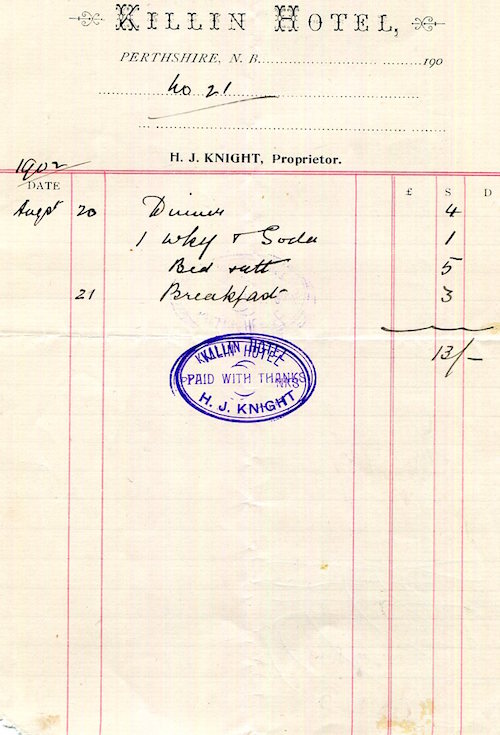 KILLIN HOTEL,
PERTHSHIRE, N. B. 190
No 21
H. J. KNIGHT, Proprietor.
1902
DATE £ S D
Augst 20 Dinner 4
1 Wky & Soda 1
Bed 5
21 Breakfast 3
13/-
KILLIN HOTEL
PAID WITH THANKS
H. J. KNIGHT